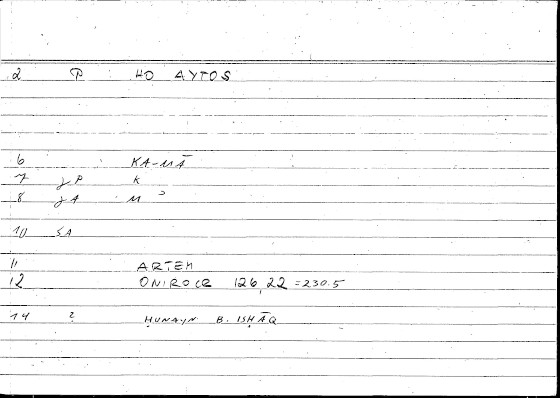 2 P HO AYTOS
6 KA-MĀ
7 γP K
8 γA M ᵓ
10 SA
11 ARTEM
12 ONIROCR 126,22 =230.5
14 2 ḤUNAYN B. ISḤĀQ